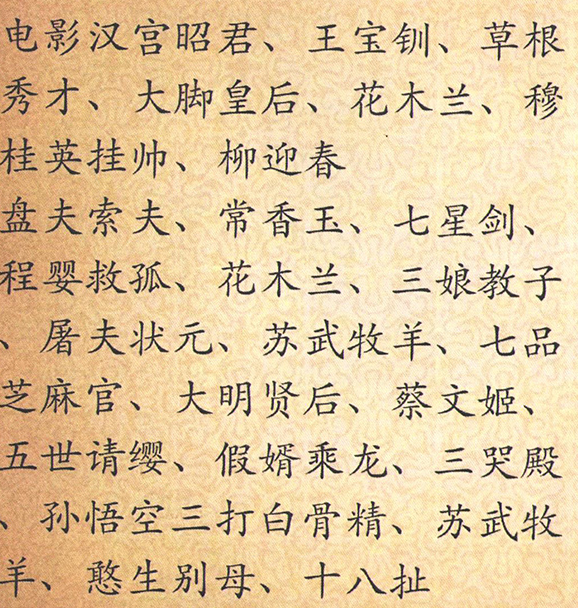 电影汉宫昭君、王宝钏、草根
秀才、大脚皇后、花木兰、穆
桂英挂帅、柳迎春
盘夫索夫、常香玉、七星剑、
程婴救孤、花木兰、三娘教子
、屠夫状元、苏武牧羊、七品
芝麻官、大明贤后、蔡文姬、
五世请缨、假婿乘龙、三哭殿
、孙悟空三打白骨精、苏武牧
羊、憨生别母、十八扯